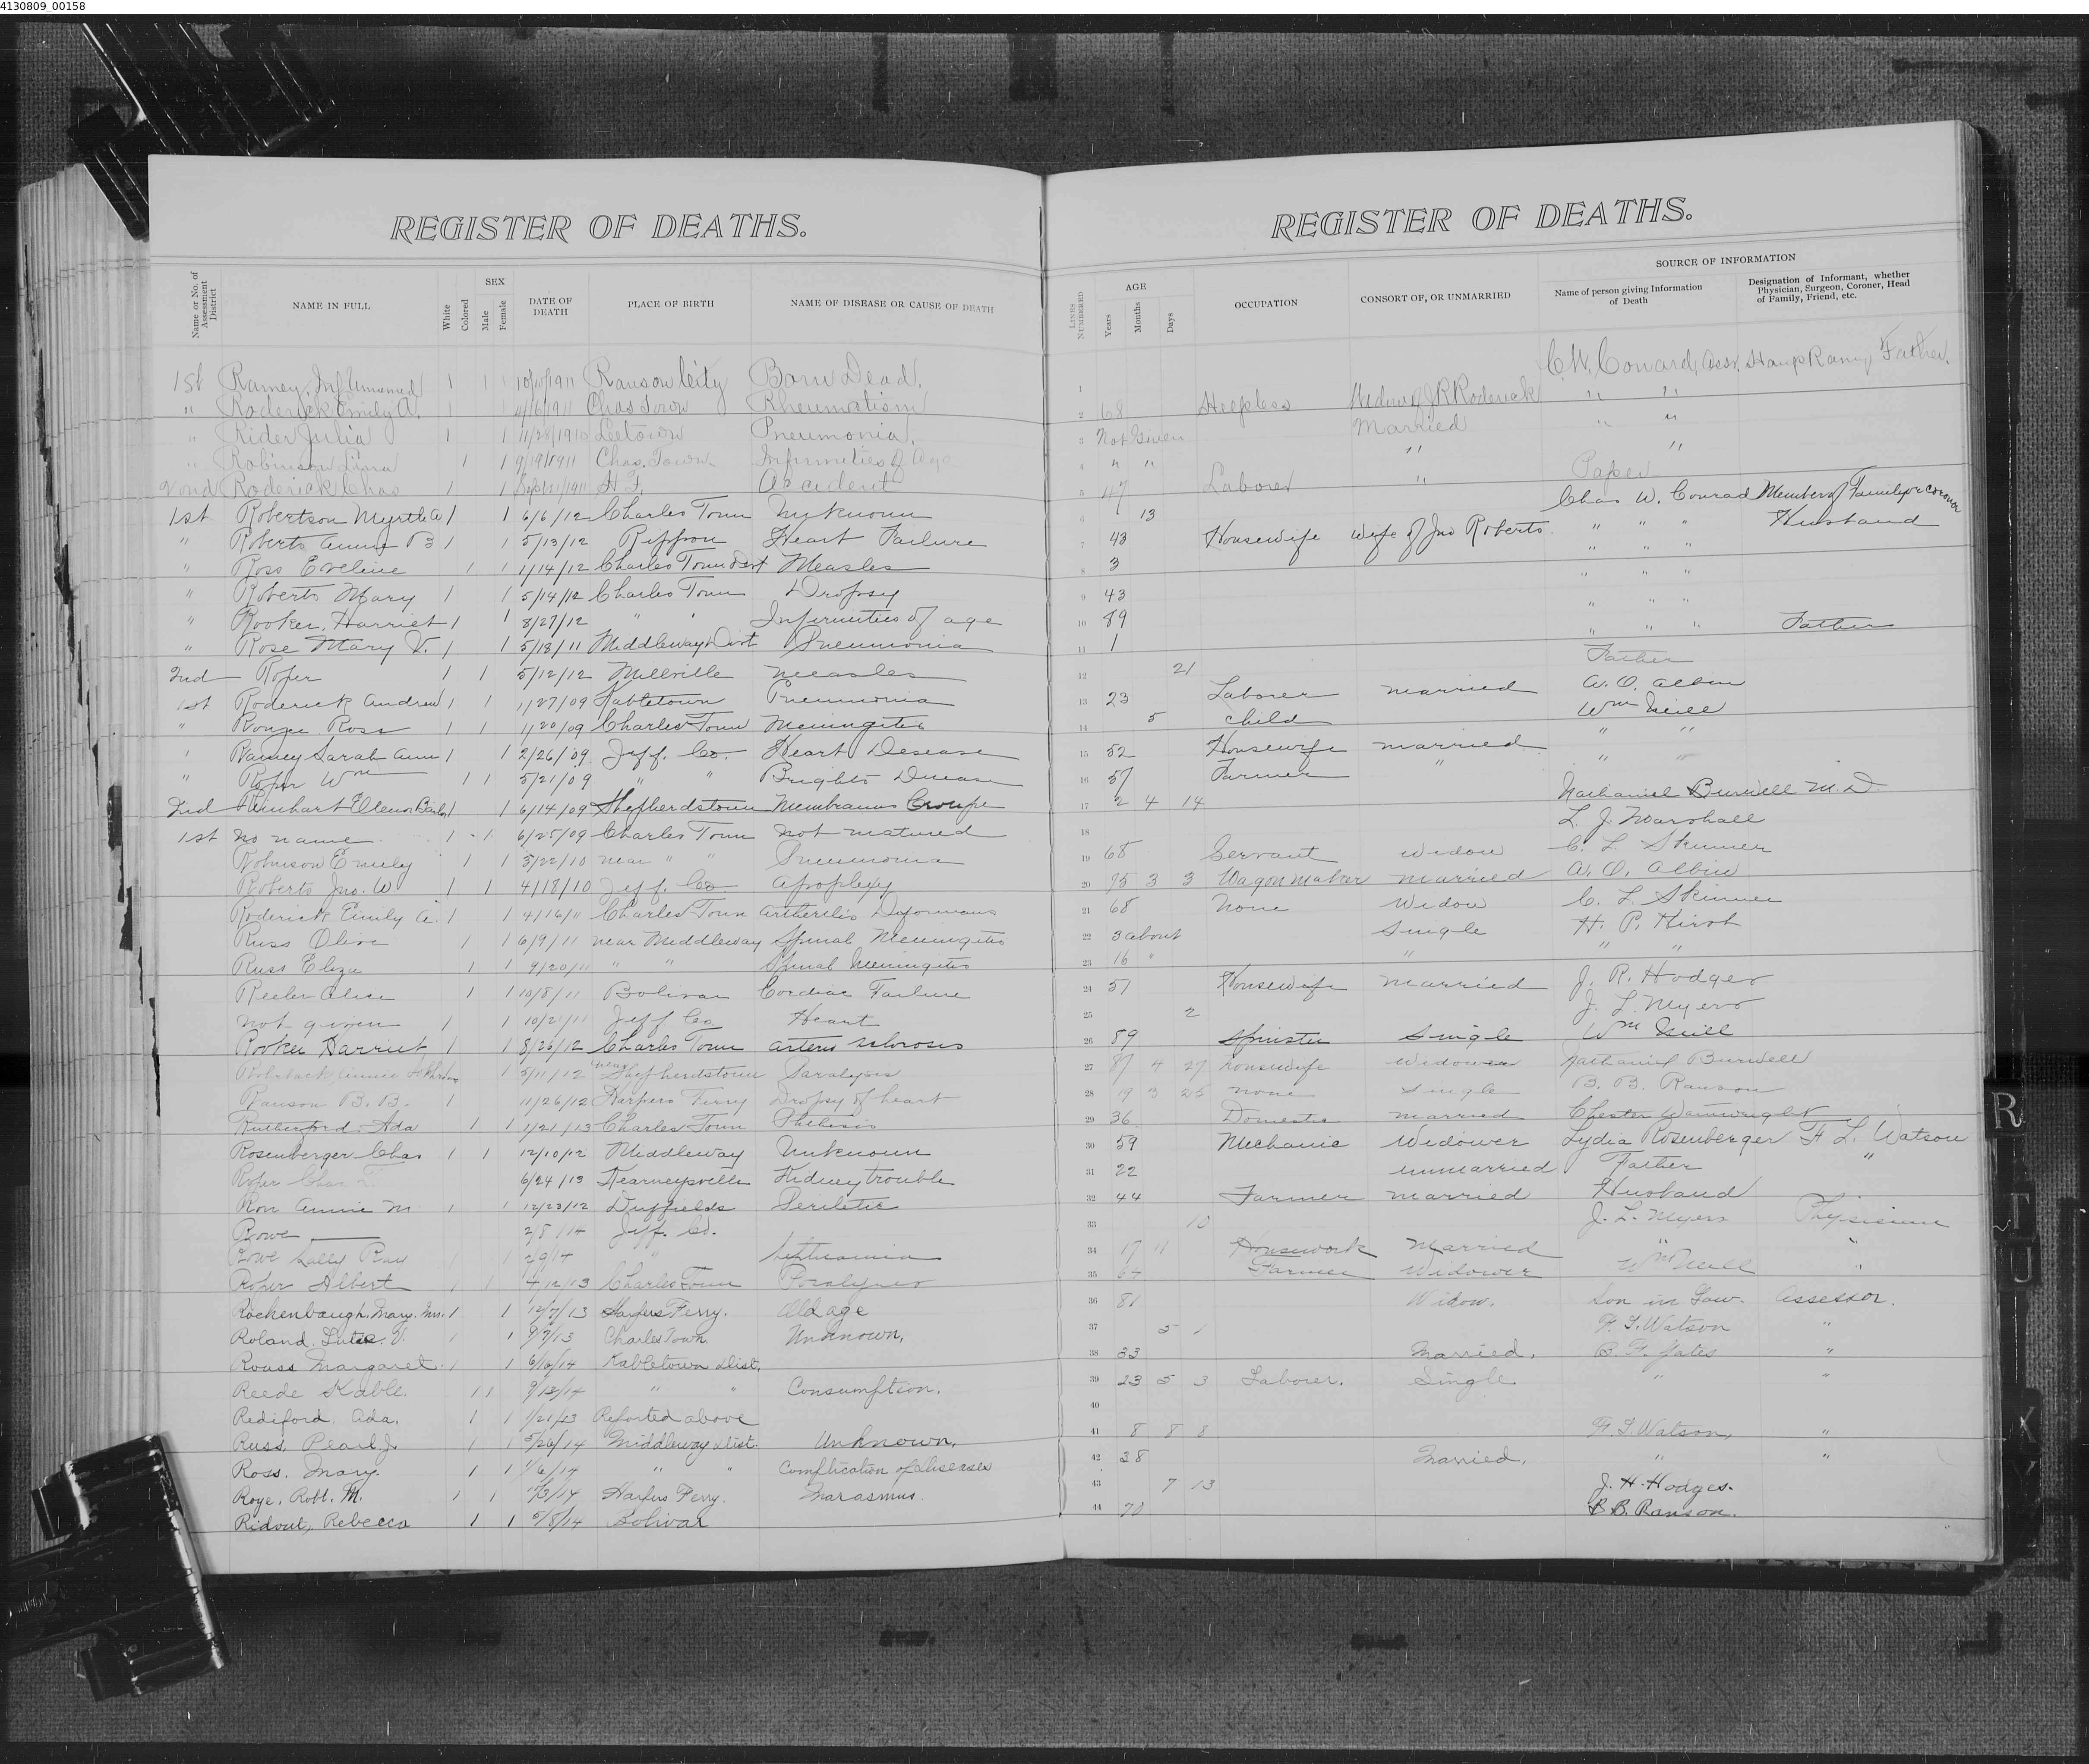 4130809_00158
REGISTER OF DEATHS.
Name or No. of Assessment District
NAME IN FULL
White
Colored
SEX
Male
Female
DATE OF DEATH
PLACE OF BIRTH
NAME OF DISEASE OR CAUSE OF DEATH
1st Ramey, Inf Unnamed 1 1 10/10/1911 Ranson City Born Dead.
" Roderick Emily A. 1 1 4/16/1911 Chas Town Rheumatism
" Rider Julia 1 1 11/28/1910 Leetown Pneumonia.
" Robinson 1 1 9/19/1911 Chas. Town Infirmities of Age
2ond Roderick Chas 1 1 H F. Accident
1st Robertson Myrtle A 1 1 6/6/12 Charles Town Unknown
" Roberts Annie B 1 1 5/13/12 Rippon Heart Failure
" Ross Eveline 1 1 1/14/12 Charles Town Dist Measles
" Roberts Mary 1 1 5/14/12 Charles Town Dropsy
" Rooker, Harriet 1 1 8/27/12 " " Infirmities of age
" Rose Mary V. 1 1 5/18/11 Middleway Dist Pneumonia
2nd Roper 1 1 5/12/12 Millville measles
1st Roderick Andrew 1 1 1/27/09 Kabletown Pneumonia
" Ross 1 1 1/20/09 Charles Town Meningitis
" Ramey Sarah Ann 1 1 2/26/09 Jeff. Co. Heart Desease
" Roper Wm 1 1 5/21/09 " " Brights Disease
2nd Rinehart 1 1 6/14/09 Shepherdstown Membranus Croupe
1st No name 1 1 6/25/09 Charles Town not matured
Robinson Emily 1 1 3/22/10 near " " Pneumonia
Roberts Jno. W. 1 1 4/18/10 Jeff. Co Apoplexy
Roderick Emily A. 1 1 4/16/11 Charles Town
Russ Olive 1 1 6/9/11 near Middleway Spinal Meningitis
Russ Eliza 1 1 9/20/11 " " Spinal Meningitis
Reeler Alice 1 1 10/8/11 Bolivar Cordiac Failure
not given 1 1 10/21/11 Jeff Co Heart
Rooker Harriet 1 1 8/26/12 Charles Town
1 5/11/12 near Shepherdstown Paralysis
Ranson B. B. 1 11/26/12 Harpers Ferry Dropsy of heart
Rutherford. Ada 1 1 1/21/13 Charles Town Phthisis
Rosenberger Chas 1 1 12/10/12 Middleway Unknown
Roper Chas 6/24/13 Kearneysville Kidney trouble
Ron Annie M 1 1 12/23/12 Duffields
Rowe 2/8/14 Jeff. Co.
Rowe Sally Ray 1 1 "
Roper Albert 1 1 4/12/13 Charles Town
Rockenbaugh, Mary. Mrs. 1 1 12/7/13 Harpers Ferry. Old age
Roland. V. 1 1 9/7/13 Charles Town Unknown,
Rouss Margaret. 1 1 6/16/14 Kabletown Dist,
Reede Kable. 1 1 9/13/14 " " Consumption.
Rediford, Ada. 1 1 1/21/13 Reported above
Russ, Pearl. J. 1 1 5/26/14 Middleway Dist. Unknown,
Ross. Mary. 1 1 1/6/14 " " Complication of diseases
Roye, Robt. M. 1 1 Harpers Ferry. Marasmus.
Ridout, Rebecca 1 1 5/5/14 Bolivar
REGISTER OF DEATHS.
LINES NUMBERED
AGE
Years
Months
Days
OCCUPATION
CONSORT OF, OR UNMARRIED
SOURCE OF INFORMATION
Name of person giving Information of Death
Designation of Informant, whether Physician, Surgeon, Coroner, Head of Family, Friend, etc.
1 C. W. Conard, Assr, Father.
2 68 Helpless Widow of J R Roderick " "
3 Not Given Married " "
4 " " " "
5 47 Laborer " Paper
6 13 Chas W. Conrad Member of Family or Coroner
7 43 Housewife Wife of Jno Roberts. " " " Husband
8 3 " " "
9 43 " " "
10 89 " " "
11 1 " " " Father
12 21 Father
13 23 Laborer married A. O. Albin
14 5 child Wm Neill
15 52 Housewife married " "
16 57 Farmer " " "
17 2 4 14 Nathaniel Burwell M. D
18 L. J. Marshall
19 68 Servant widow C. L. Skinner
20 75 3 3 Wagon maker married A. O. Albin
21 68 None Widow C. L. Skinner
22 3 about Single H. P. Hirst
23 16 " " " "
24 51 Housewife married J. R. Hodges
25 2 J. L. Myers
26 89 Spinster Single Wm Neill
27 87 4 27 housewife Widower Nathaniel Burwell
28 19 3 25 none Single B. B. Ranson
29 36 Domestic married Chester Wainwright
30 59 Mechanic Widower Lydia Rosenberger F L. Watson
31 22 unmarried Father "
32 44 Farmer married Husband
33 J. L. Myers Physician
34 17 11 Housework Married " "
35 64 Farmer Widower Wm Neill "
36 81 Widow. Son in Law. Assessor.
37 5 1 F. L. Watson "
38 33 Married. B. F. Yates "
39 23 5 3 Laborer. Single " "
40
41 8 8 8 F. L. Watson, "
42 38 Married. " "
43 7 13 J. H. Hodges.
44 70 B. B. Ranson.